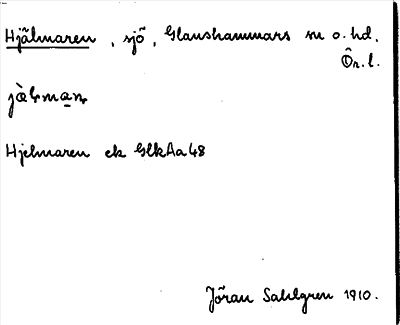 Hjälmaren, sjö, Glanshammars sn o. hd.
Ör. l.
Hjelmaren ek GlkAa48
Jöran Sahlgren 1910.